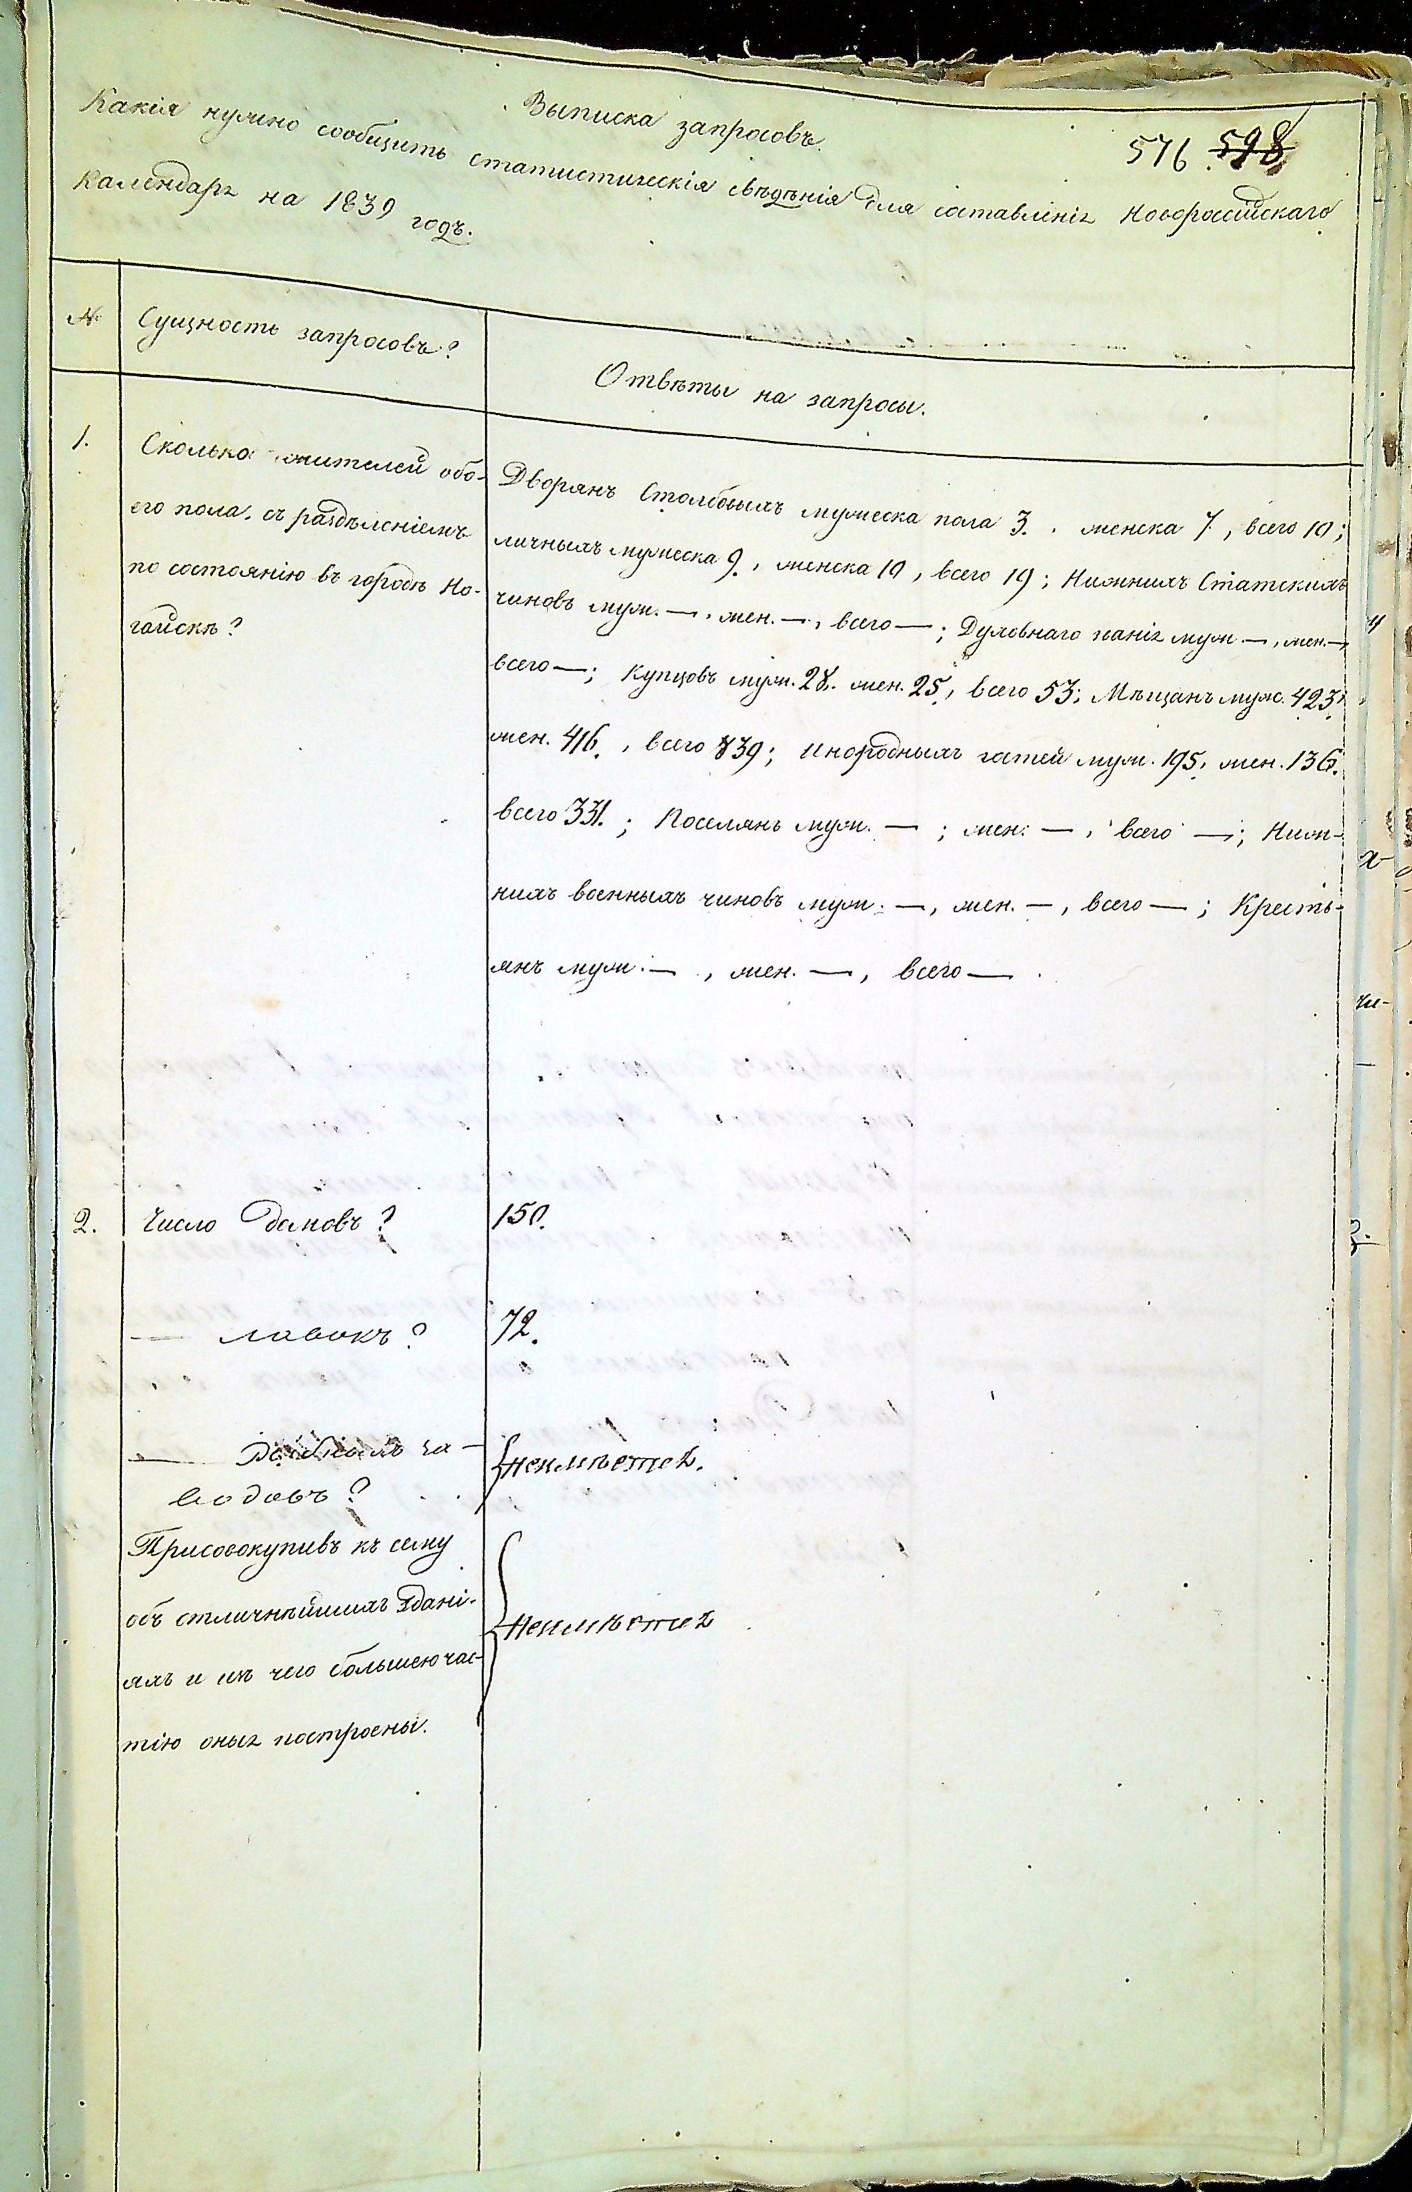 Выписка запросовъ.
576 598
Какія нужно сообщить статистическія свѣдѣнія для составленія Новороссійскаго
Календаря на 1839 годъ.
№
Сущность запросовъ?
Отвѣты на запросы.
1.
Сколько жителей обо-
его пола, съ раздѣленіемъ
по состоянію въ городѣ Но-
гайскѣ?
Дворянъ Столбовыхъ мужеска пола 3, женска 7, всего 10;
личныхъ мужеска 9, женска 10, всего 19; Нижнихъ Статскихъ
чиновъ муж. —, жен. —, всего —; Духовнаго званія муж —, жен. —,
всего —; Купцовъ муж. 28. жен. 25, всего 53; Мѣщанъ муж. 423,
жен. 416, всего 839; Инородныхъ гостей муж. 195, жен. 136.
всего 331.; Поселянъ муж. —; жен. —, всего —; Ниж-
нихъ военныхъ чиновъ муж. —, жен. —, всего —; Кресть-
янъ муж. —, жен. —, всего —.
2.
Число домовъ?
150.
— лавокъ?
72.
— за-
водовъ?
неимѣется.
Присовокупивъ къ сему
объ отличнѣйшихъ здані-
яхъ и изъ чего большею час-
тію оныя построены.
неимѣется